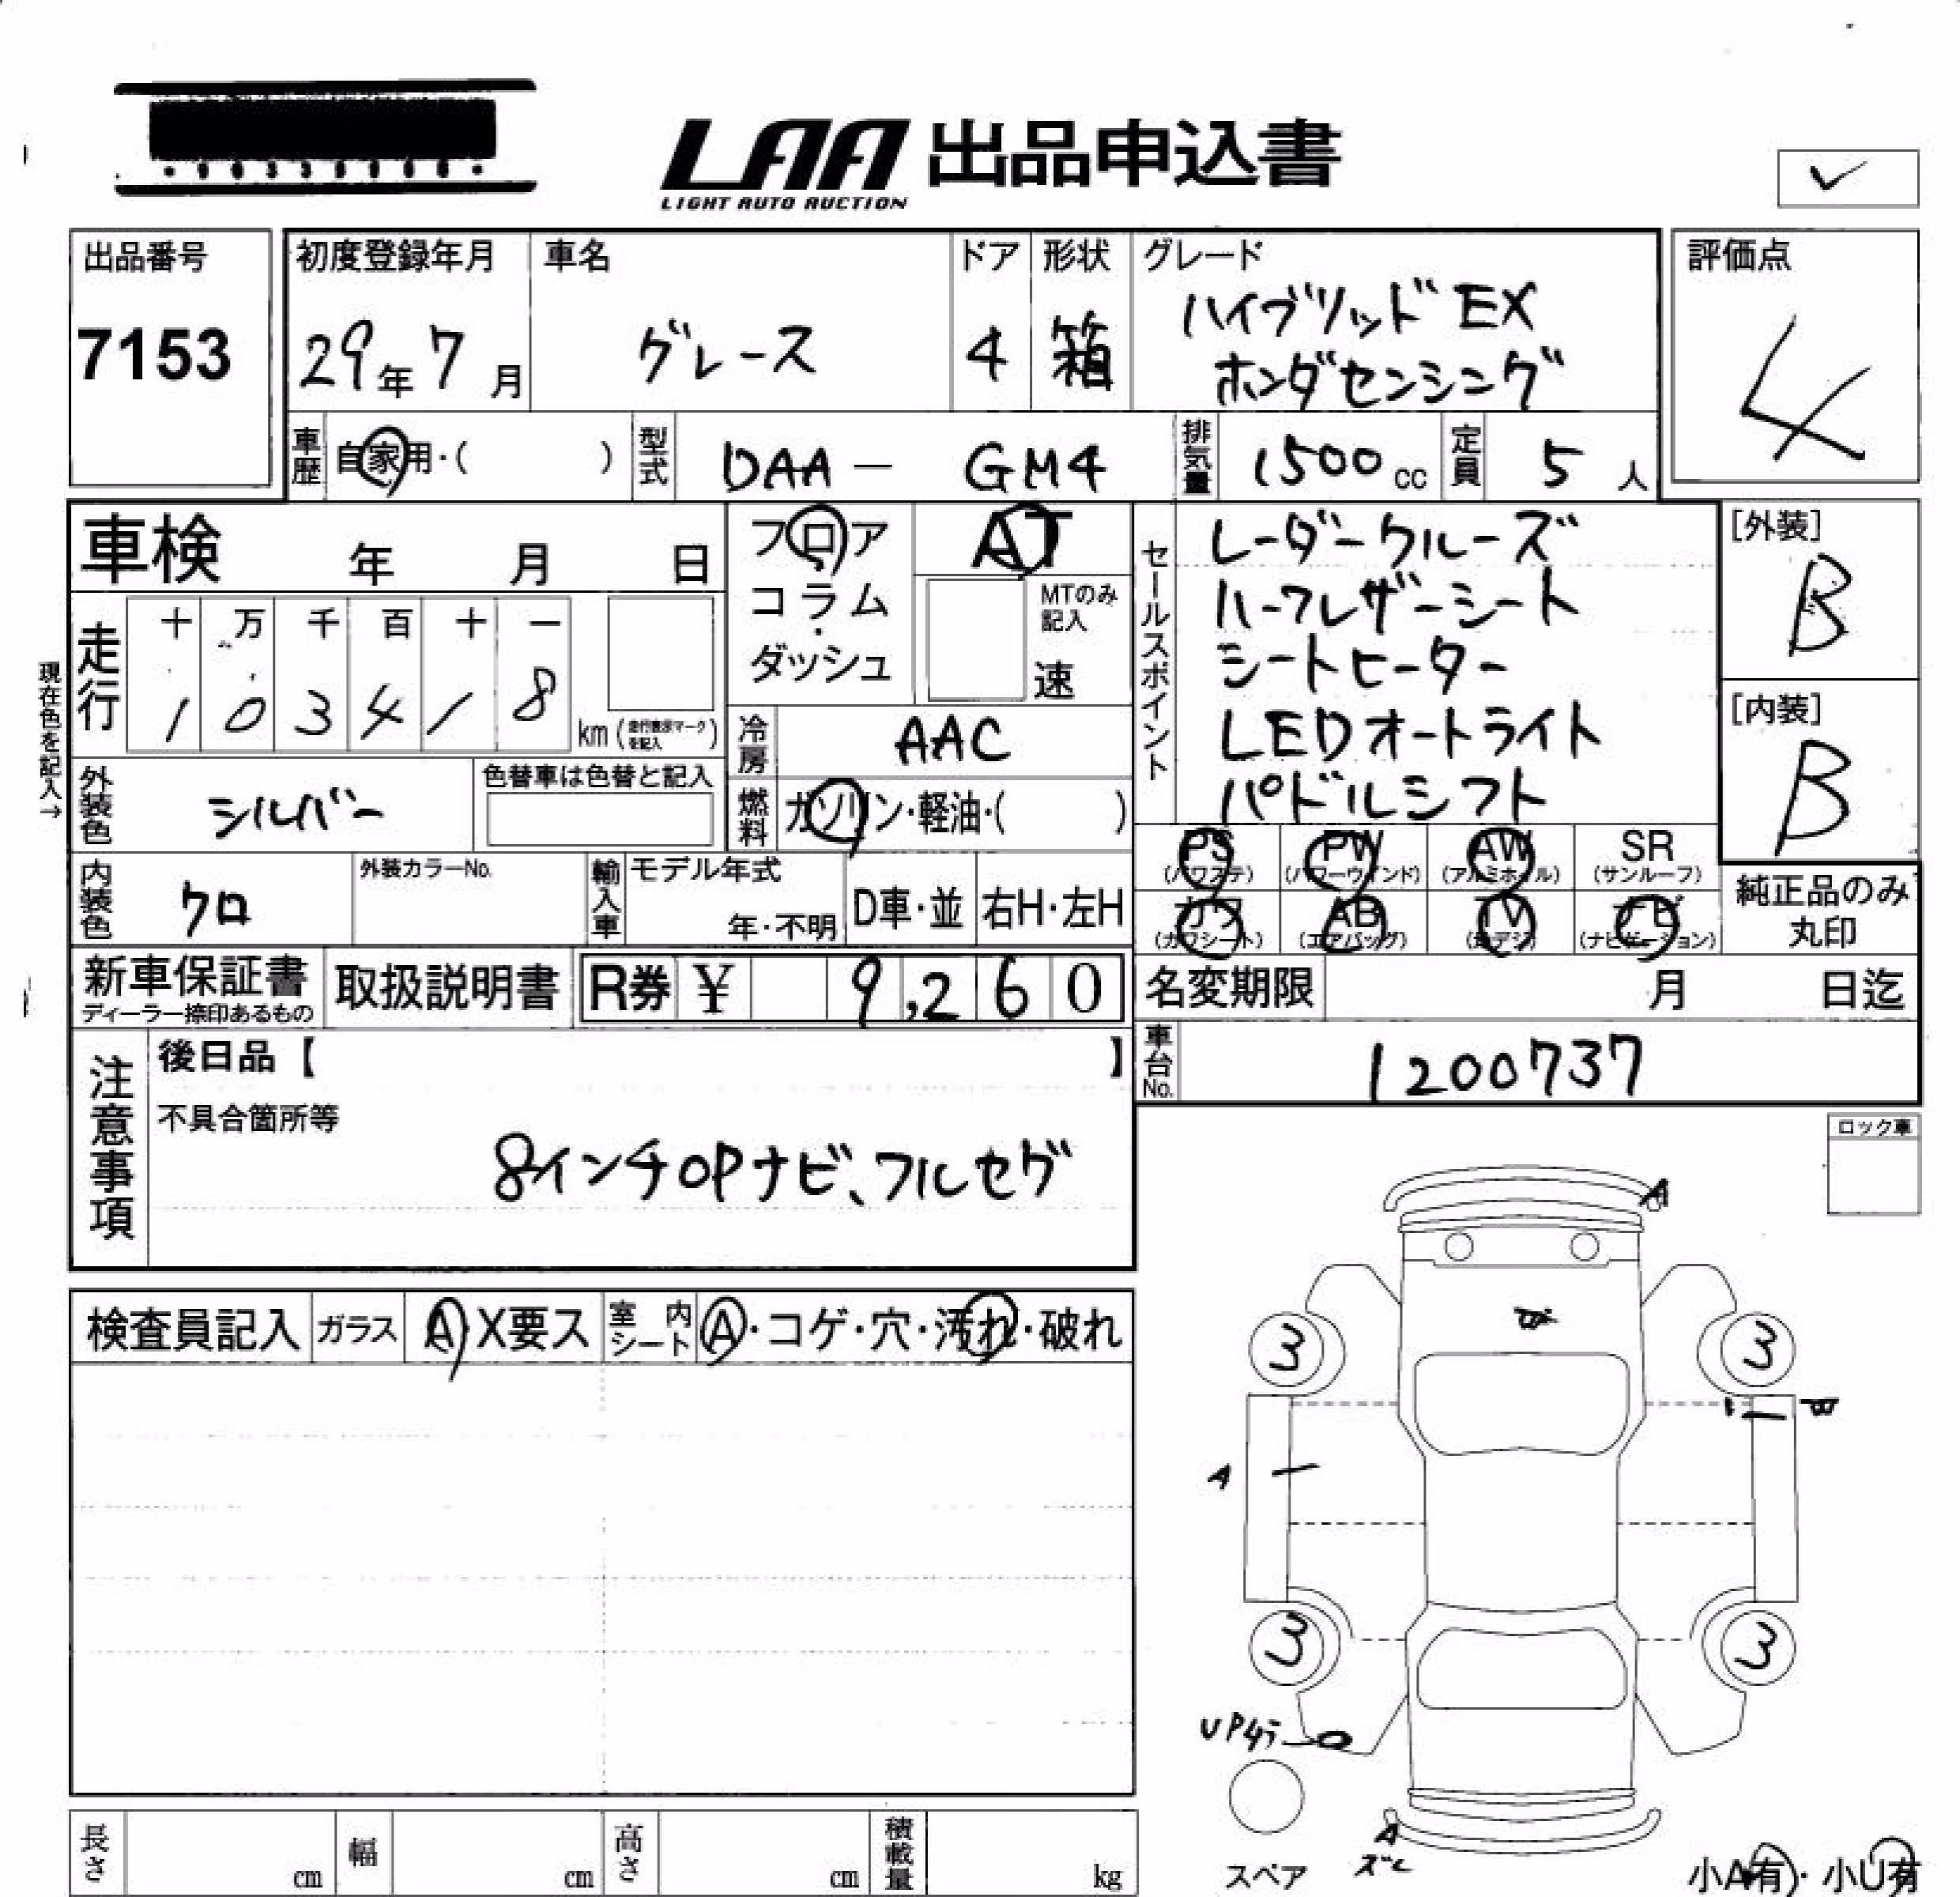 LAA 出品申込書
LIGHT AUTO AUCTION
✓
出品番号
7153
初度登録年月
29年7月
車名
グレース
ドア
4
形状
箱
グレード
ハイブリッド EX
ホンダセンシング
評価点
4
車歴
自家用・( )
型式
DAA - GM4
排気量
1500 cc
定員
5 人
車検 年 月 日
フロア
コラム
・
ダッシュ
AT
MTのみ
記入
速
セールスポイント
レーダークルーズ
ハーフレザーシート
シートヒーター
LEDオートライト
パドルシフト
[外装]
B
[内装]
B
現在色を記入→
走行
十 万 千 百 十 一
1 0 3 4 1 8
km (走行表示マークを記入)
冷房
AAC
外装色
シルバー
色替車は色替と記入
燃料
ガソリン・軽油・( )
PS (パワステ)
PW (パワーウインド)
AW (アルミホイル)
SR (サンルーフ)
カワ (カワシート)
AB (エアバッグ)
TV
ナビ (ナビゲーション)
純正品のみ
丸印
内装色
クロ
外装カラーNo.
輸入車
モデル年式
年・不明
D車・並
右H・左H
新車保証書
ディーラー捺印あるもの
取扱説明書
R券 ¥ 9,260
名変期限 月 日迄
車台No.
1200737
注意事項
後日品【 】
不具合箇所等
8インチOPナビ、フルセグ
ロック車
検査員記入
ガラス
A X要ス
室内
シート
A・コゲ・穴・汚れ・破れ
A
3
3
A
3
3
UP
スペア
A
ズレ
小A有・小U有
長さ cm
幅 cm
高さ cm
積載量 kg